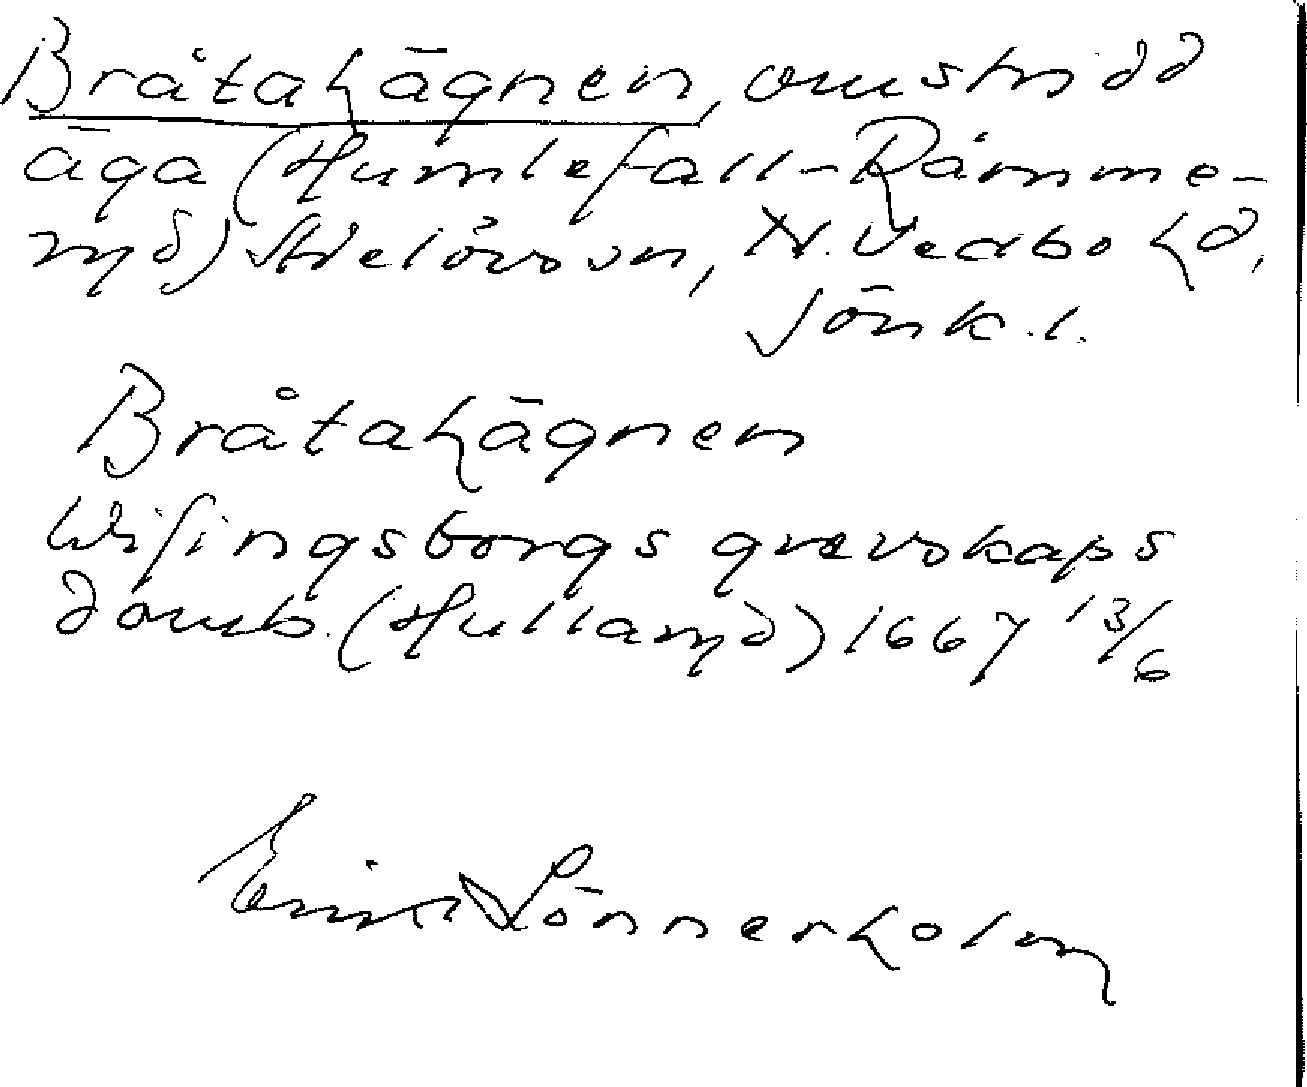 Bråtahägnen, omstridd
äga (Humlefall-Råmme-
ryd) Strelövs sn, N. Vedbo hd,
Jönk. l.
Bråtahägnen
Wisingsborgs grevskaps
domb. (Hullaryd) 1667 13/6
Einar Lönnerholm